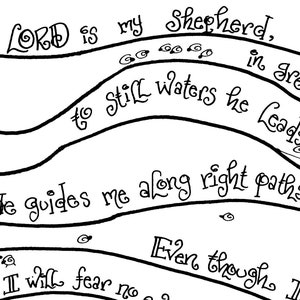 LORD is my Shepherd,
in
to still waters he leads
guides me along right paths
Even though I
I will fear no